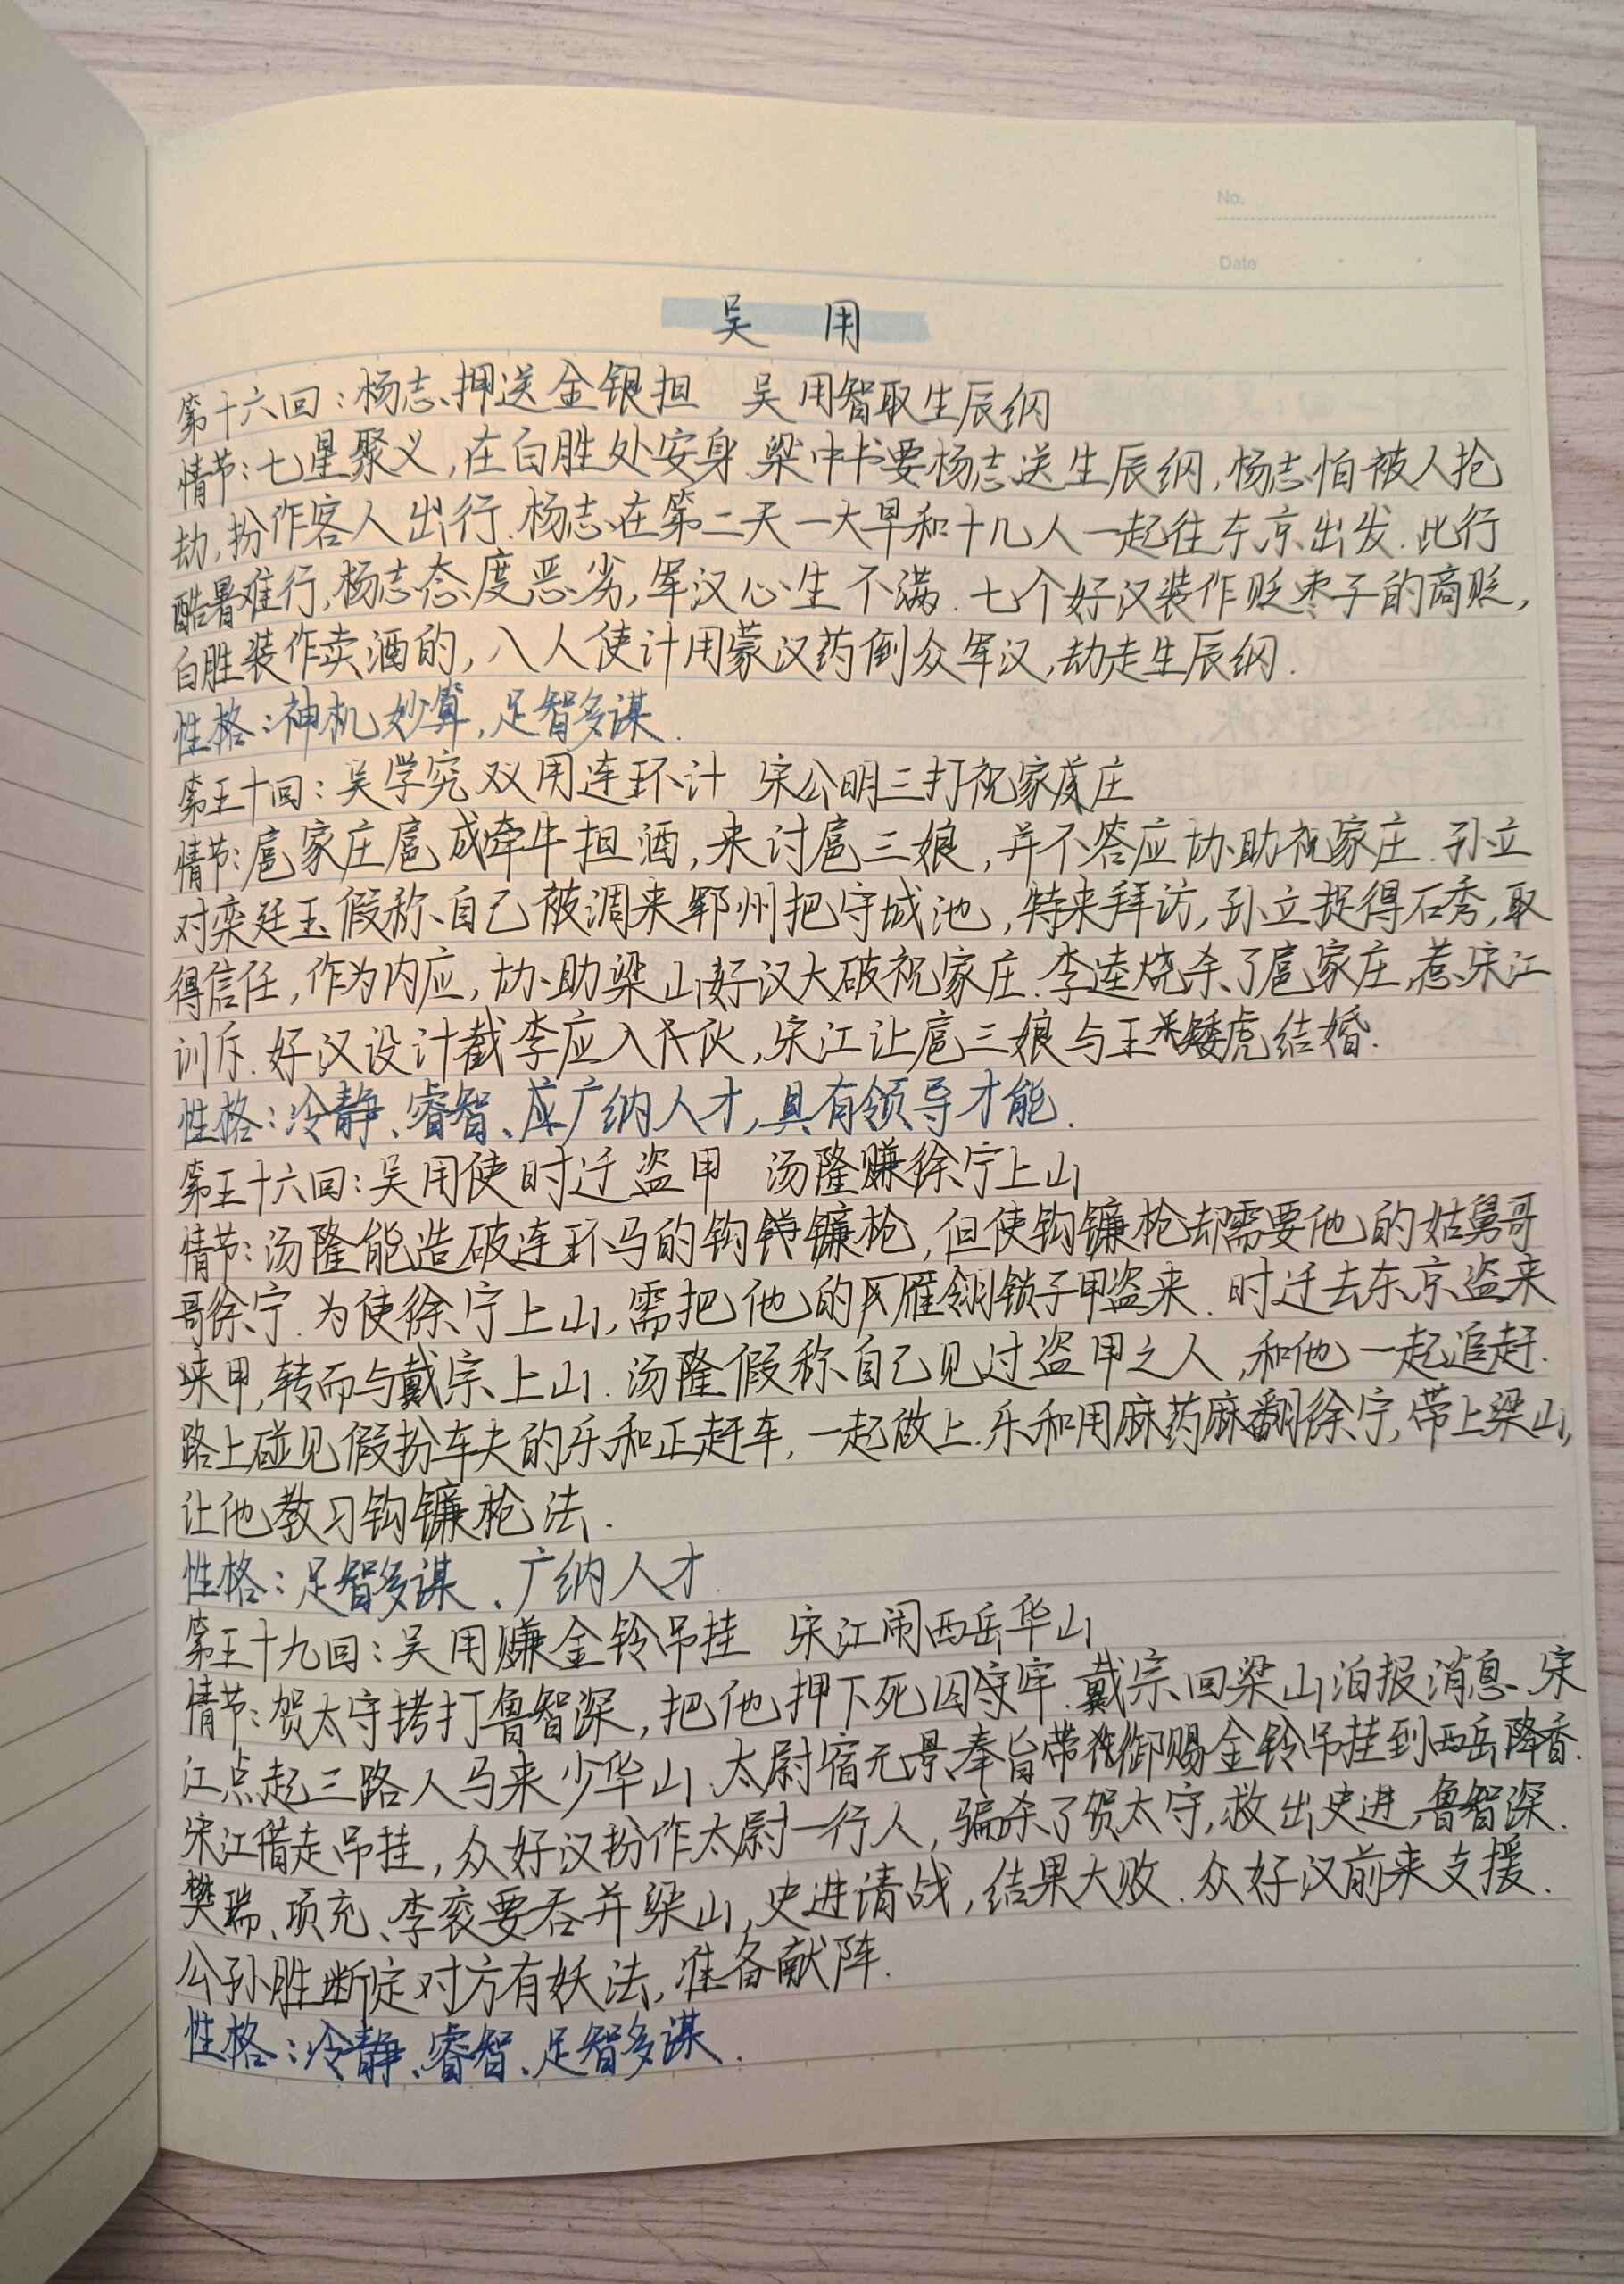 No.
Date
吴 用
第十六回:杨志押送金银担 吴用智取生辰纲
情节:七星聚义,在白胜处安身.梁中书要杨志送生辰纲,杨志怕被人抢
劫,扮作客人出行.杨志在第二天一大早和十几人一起往东京出发.此行
酷暑难行,杨志态度恶劣,军汉心生不满.七个好汉装作贩枣子的商贩,
白胜装作卖酒的,八人使计用蒙汉药倒众军汉,劫走生辰纲.
性格:神机妙算,足智多谋.
第五十回:吴学究双用连环计 宋公明三打祝家庄
情节:扈家庄扈成牵牛担酒,来讨扈三娘,并不答应协助祝家庄.孙立
对栾廷玉假称自己被调来郓州把守城池,特来拜访,孙立捉得石秀,取
得信任,作为内应,协助梁山好汉大破祝家庄.李逵烧杀了扈家庄,惹宋江
训斥.好汉设计截李应入伙,宋江让扈三娘与王矮虎结婚.
性格:冷静、睿智、广纳人才,具有领导才能.
第五十六回:吴用使时迁盗甲 汤隆赚徐宁上山
情节:汤隆能造破连环马的钩镰枪,但使钩镰枪却需要他的姑舅哥
哥徐宁.为使徐宁上山,需把他的雁翎锁子甲盗来.时迁去东京盗来
来甲,转而与戴宗上山.汤隆假称自己见过盗甲之人,和他一起追赶.
路上碰见假扮车夫的乐和正赶车,一起做上.乐和用麻药麻翻徐宁,带上梁山,
让他教习钩镰枪法.
性格:足智多谋、广纳人才.
第五十九回:吴用赚金铃吊挂 宋江闹西岳华山
情节:贺太守拷打鲁智深,把他押下死囚牢.戴宗回梁山泊报消息.宋
江点起三路人马来少华山.太尉宿元景奉旨带御赐金铃吊挂到西岳降香.
宋江借走吊挂,众好汉扮作太尉一行人,骗杀了贺太守,救出史进,鲁智深.
樊瑞、项充、李衮要吞并梁山,史进请战,结果大败.众好汉前来支援.
公孙胜断定对方有妖法,准备献阵.
性格:冷静、睿智、足智多谋.